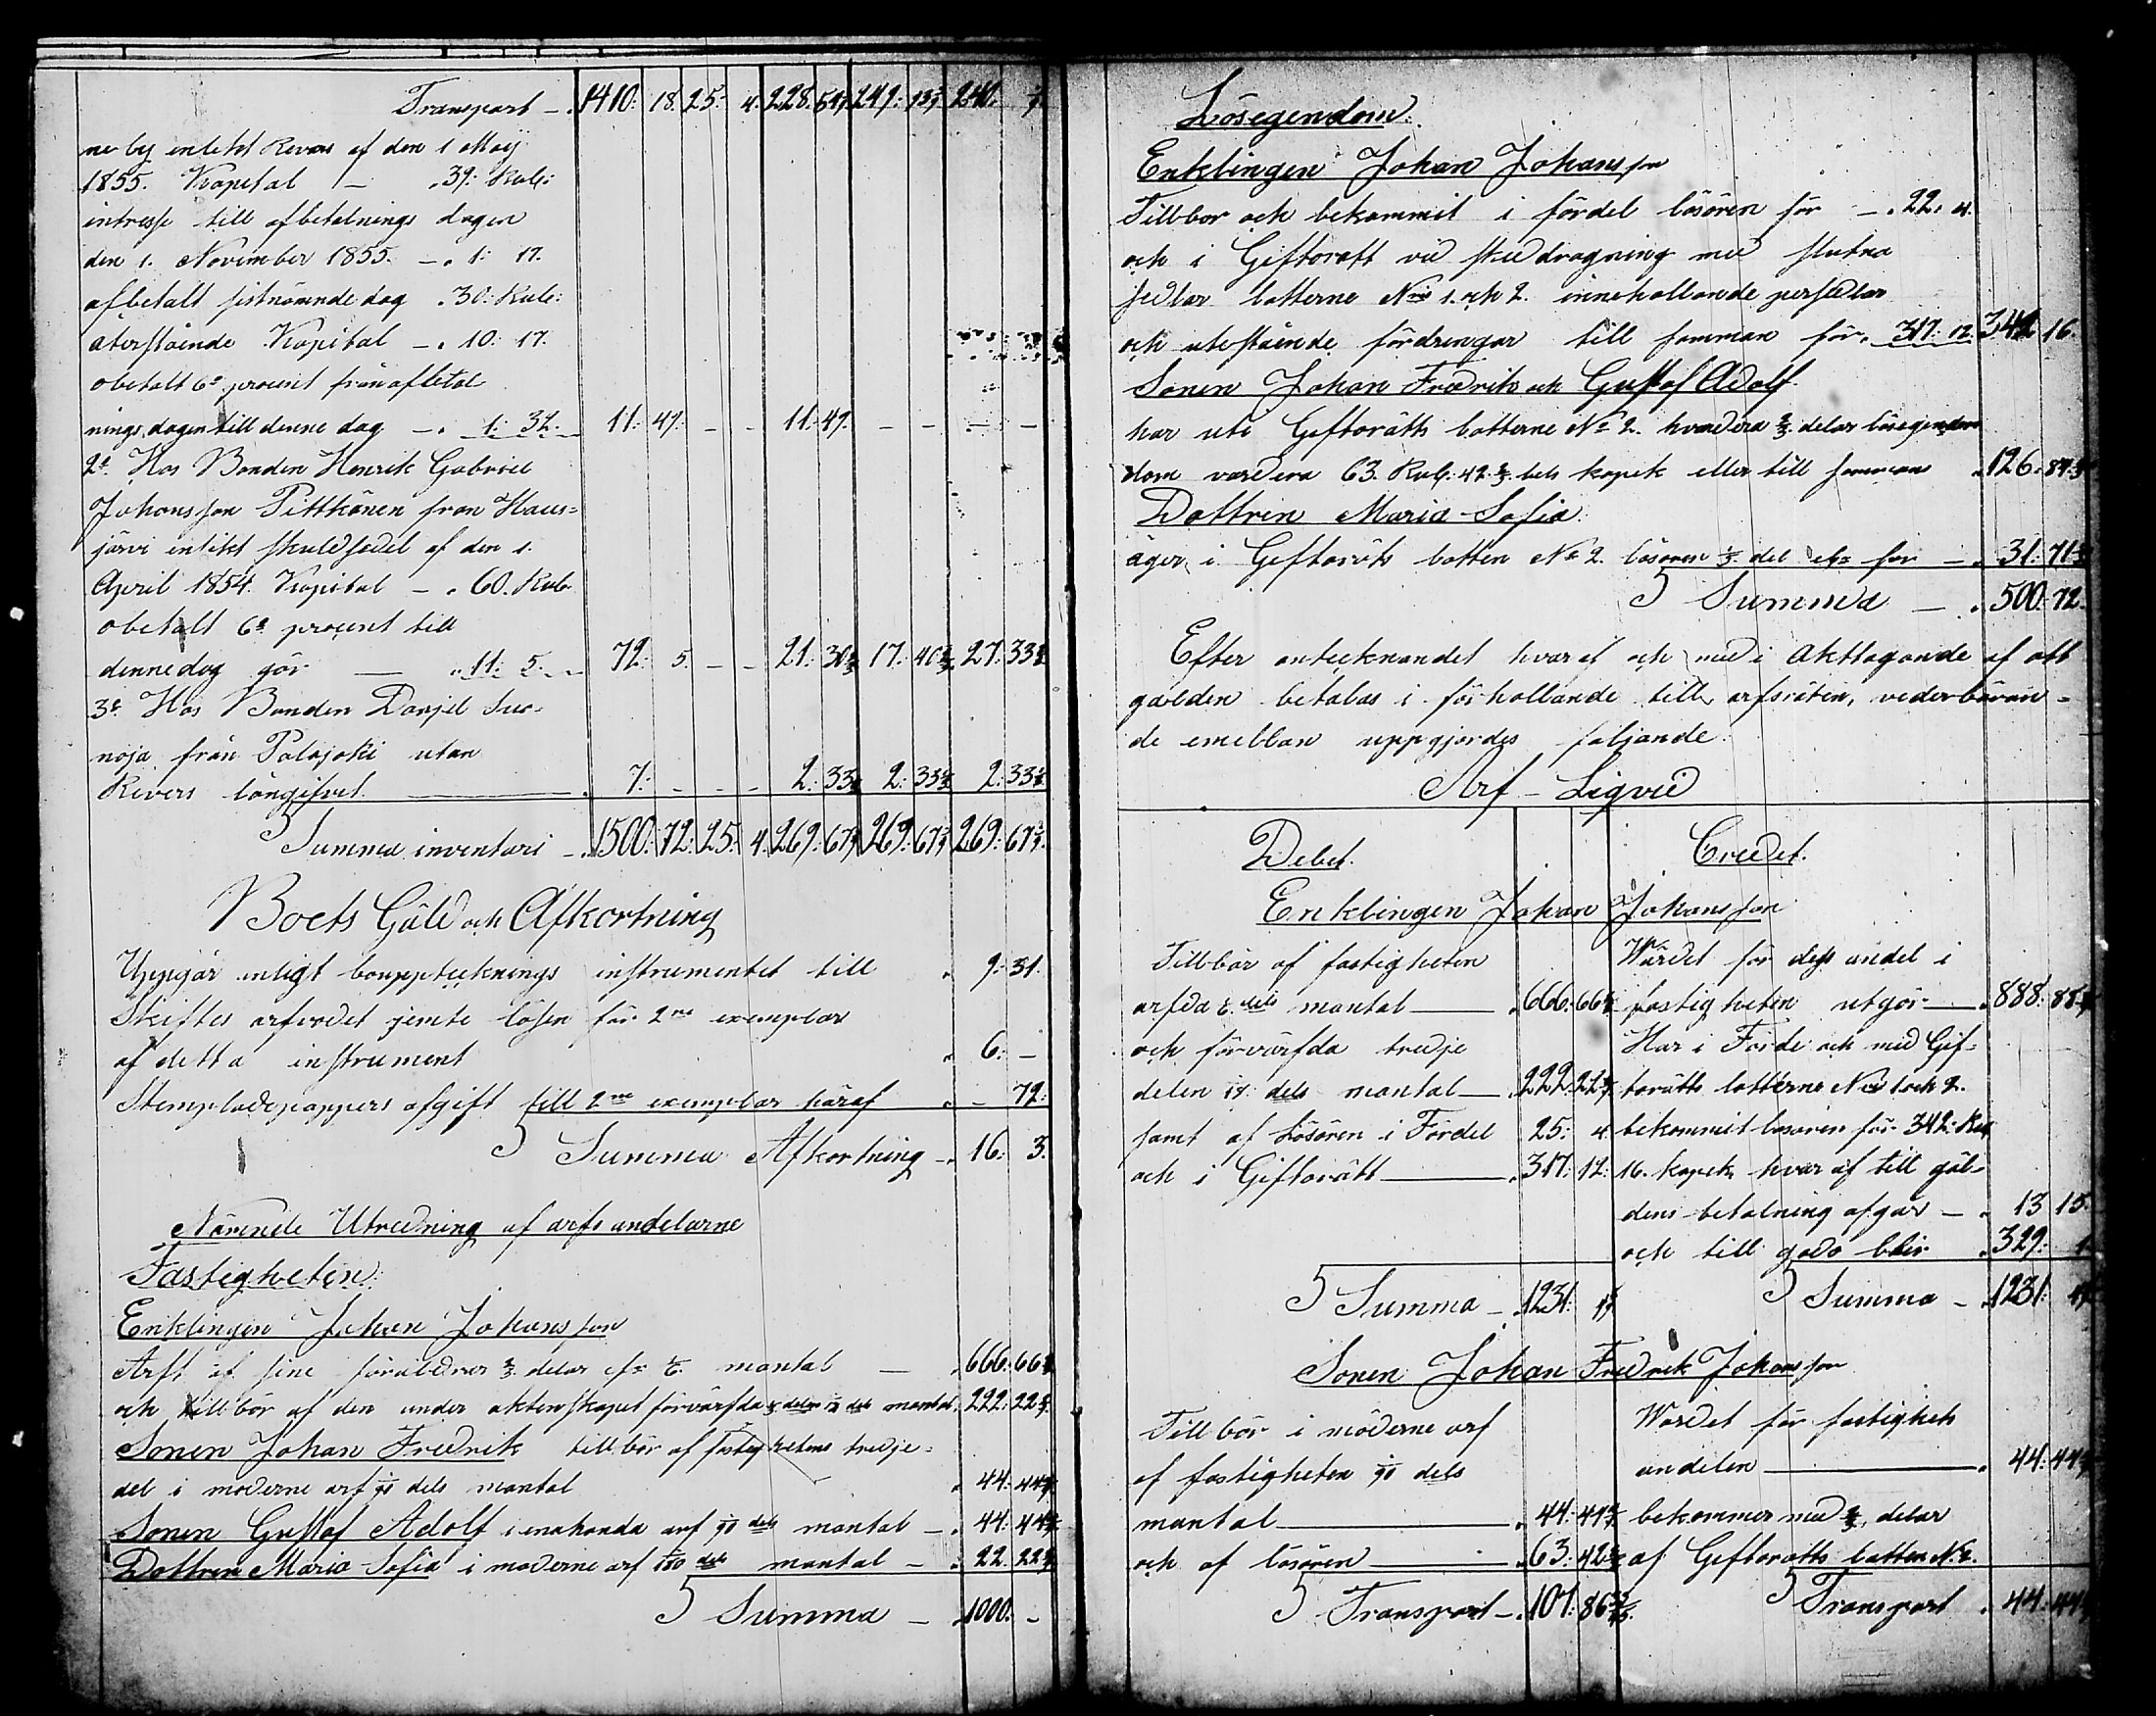 Transport - 1410: 18. 25: 4. 228: 54 249: 13 240:
ne by enlekt Revers af den 1 Maij
1855. Kapital - 39: Rub:
intresse till afbetalnings dagen
den 1. November 1855. - 1: 17.
afbetalt sistnämnde dag . 30: Rub:
återstående Kapital - . 10: 17.
obetalt 6 procent från afbetal
nings dagen till denne dag - . 1: 32. 11: 49. - - 11: 49. - - - -
2: Hos Bonden Henrik Gabriel
Johansson Pittkänen från Haus=
järvi enlikt skuldsedel af den 1.
April 1854. Kapital - . 60. Rub
obetalt 6 procent till
denne dag gör - 11: 5. - 72: 5. - - 21: 30 17: 40 27: 33
3: Hos Bonden Danjel Suo-
noja från Palojoki utan
Revers långifvet . 7: - - - 2: 33 2: 33 2: 33
Summa inventari - 1500: 72: 25: 4. 269: 67 269: 67 269: 67
Boets Gäld och Afkortning
Uppgår enligt bouppteknings instrumentet till 9: 31.
Skiftes arfvodet jemte lösen för 2ne exemplar
af detta instrument 6: -
Stempladepappers afgift till 2ne exemplar häraf - 72:
Summa Afkortning - 16: 3.
Utredning af arfs andelarne
Fastigheten:
Enklingen Johan Johansson
Arft af sine föräldrar 2/3 delar 1/6 mantal - 666: 66
och till bör af den under äktenskapet förvärfda mantal. 222: 22
Sonen Johan Fredrik till bör af fastighetens tredje=
del i moderne arf dels mantal 44: 44
Sonen Gustaf Adolf i enahanda arf dels mantal - 44: 44
Dottren Maria Sofia i moderne arf dels mantal - 22 22
Summa - 1000: -
Lösegendom:
Enklingen Johan Johansson
Tillbör och bekommit i fördel lösören för - . 22: 4.
och i Giftorätt vid skedragning med slutna
sedlar lotterne No 1. och 2. innehållande persedlar
och utestående fordringar till samman för. 317: 12. 342 16.
Sonen Johan Fredrik och Gustaf Adolf
har uti Giftorätts lotterne No 2. hvardera delar lösegen
dom vardera 63. Rub: 42. dels kopek eller till sammans 126. 84
Dottren Maria Sofia:
äger i Giftoräts lotten No 2. lösören del för - 31: 71
Summa - . 500. 72.
Efter antecknandet häraf och med i akttagande af att
gälden betalas i förhållande till arfsräten, vederböran=
de emellan uppgjordes följande:
Arf - Liqvid
Debet. Credet.
Enklingen Johan Johansson
Tillbör af fastigheten
arfda dels mantal . 666: 66
och förvärfda tredje
delen 18 dels mantal . 222: 22
samt af Lösören i Fördel 25: 4.
och i Giftorätt . 317: 12:
Summa - 1231:
Wärdet för dess andel i
fastigheten utgör . 888: 88
Har i Fördel och med Gif=
torätts lotterne No 1 och 2.
bekommit lösören för 342: Rub
16. kopek hvar af till gäl=
dens betalning afgår - 13 15.
och till godo blir . 329: 1
Summa - 1231:
Sonen Johan Fredrik Johansson
Till bör i möderne arf
af fastigheten dels
mantal . 44: 44
och af lösören . 63: 42
Transport - . 107: 86
Wärdet för fastighets
andelen . 44: 44
bekommer med delar
af Giftorätts lotten No 2.
Transport . 44: 44